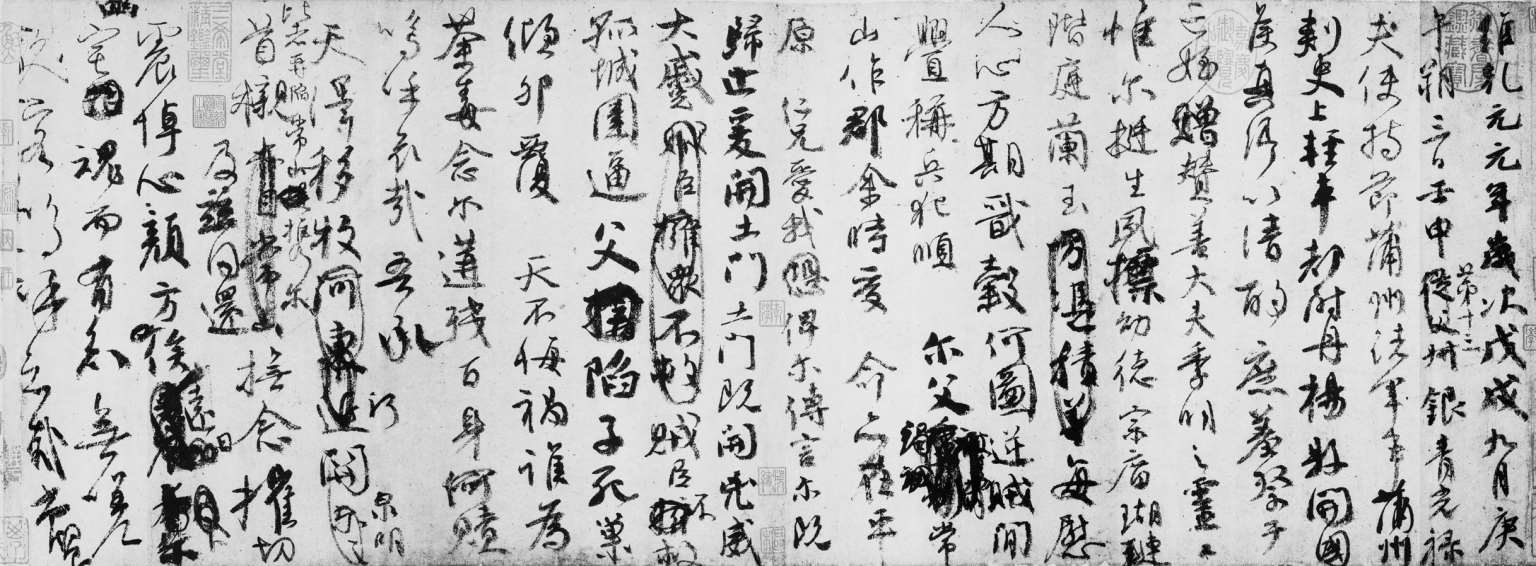 維乾元元年歲次戊戌九月庚
午朔三日壬申第十三從父銀青光祿
夫使持節蒲州諸軍事蒲州
刺史上輕車都尉丹楊縣開國
侯真卿以清酌庶羞祭于
亡姪贈贊善大夫季明之靈
惟爾挺生夙標幼德宗廟瑚璉
階庭蘭玉每慰
人心方期戩穀何圖逆賊閒
釁稱兵犯順爾父竭誠常
山作郡余時受命亦在平
原仁兄愛我俾爾傳言爾既
歸止爰開土門土門既開凶威
大蹙賊臣不救
孤城圍逼父陷子死巢
傾卵覆天不悔禍誰為
荼毒念爾遘殘百身何贖
嗚乎哀哉吾承
天澤移牧河關泉明
比者再陷常山攜爾
首櫬及茲同還撫念摧切
震悼心顏方俟遠日
爾幽宅魂而有知無嗟
久客嗚呼哀哉尚饗